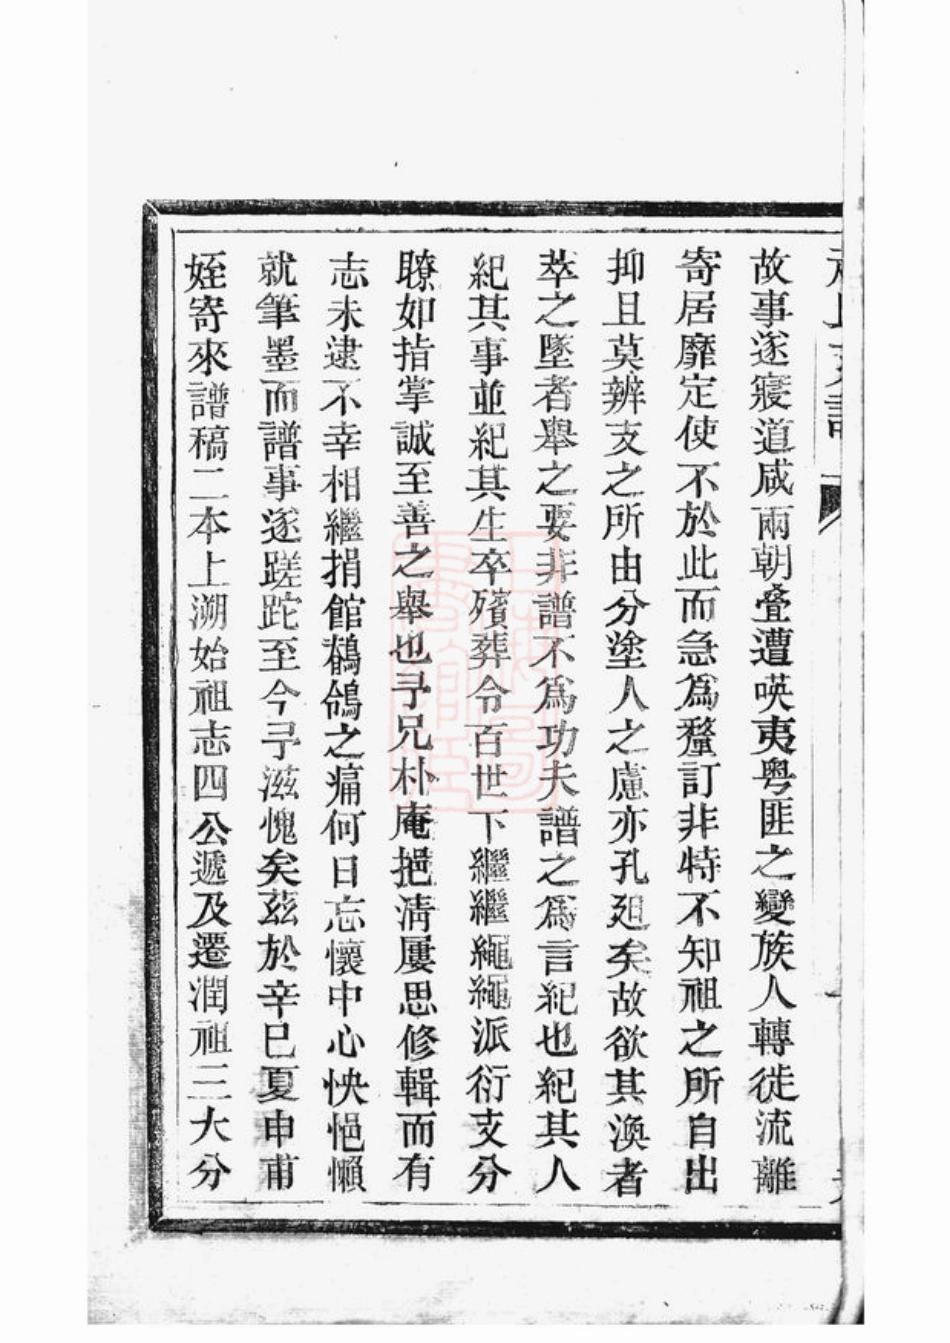 故事遂寢道咸兩朝叠遭㗲夷粤匪之變族人轉徙流離
寄居靡定使不於此而急爲釐訂非特不知祖之所自出
抑且莫辨支之所由分塗人之慮亦孔廹矣故欲其渙者
萃之墜者舉之要非譜不爲功夫譜之爲言紀也紀其人
紀其事並紀其生卒殯葬令百世下繼繼繩繩派衍支分
瞭如指掌誠至善之舉也予兄朴庵挹淸屢思修輯而有
志未逮不幸相繼捐館鶺鴒之痛何日忘懷中心怏悒懶
就筆墨而譜事遂蹉跎至今予滋愧矣茲於辛巳夏申甫
姪寄來譜稿二本上溯始祖志四公遞及遷潤祖三大分